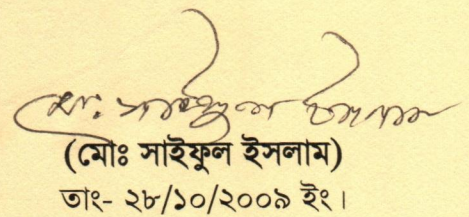 মোঃ সাইফুল ইসলাম
(মোঃ সাইফুল ইসলাম)
তাং- ২৮/১০/২০০৯ ইং।